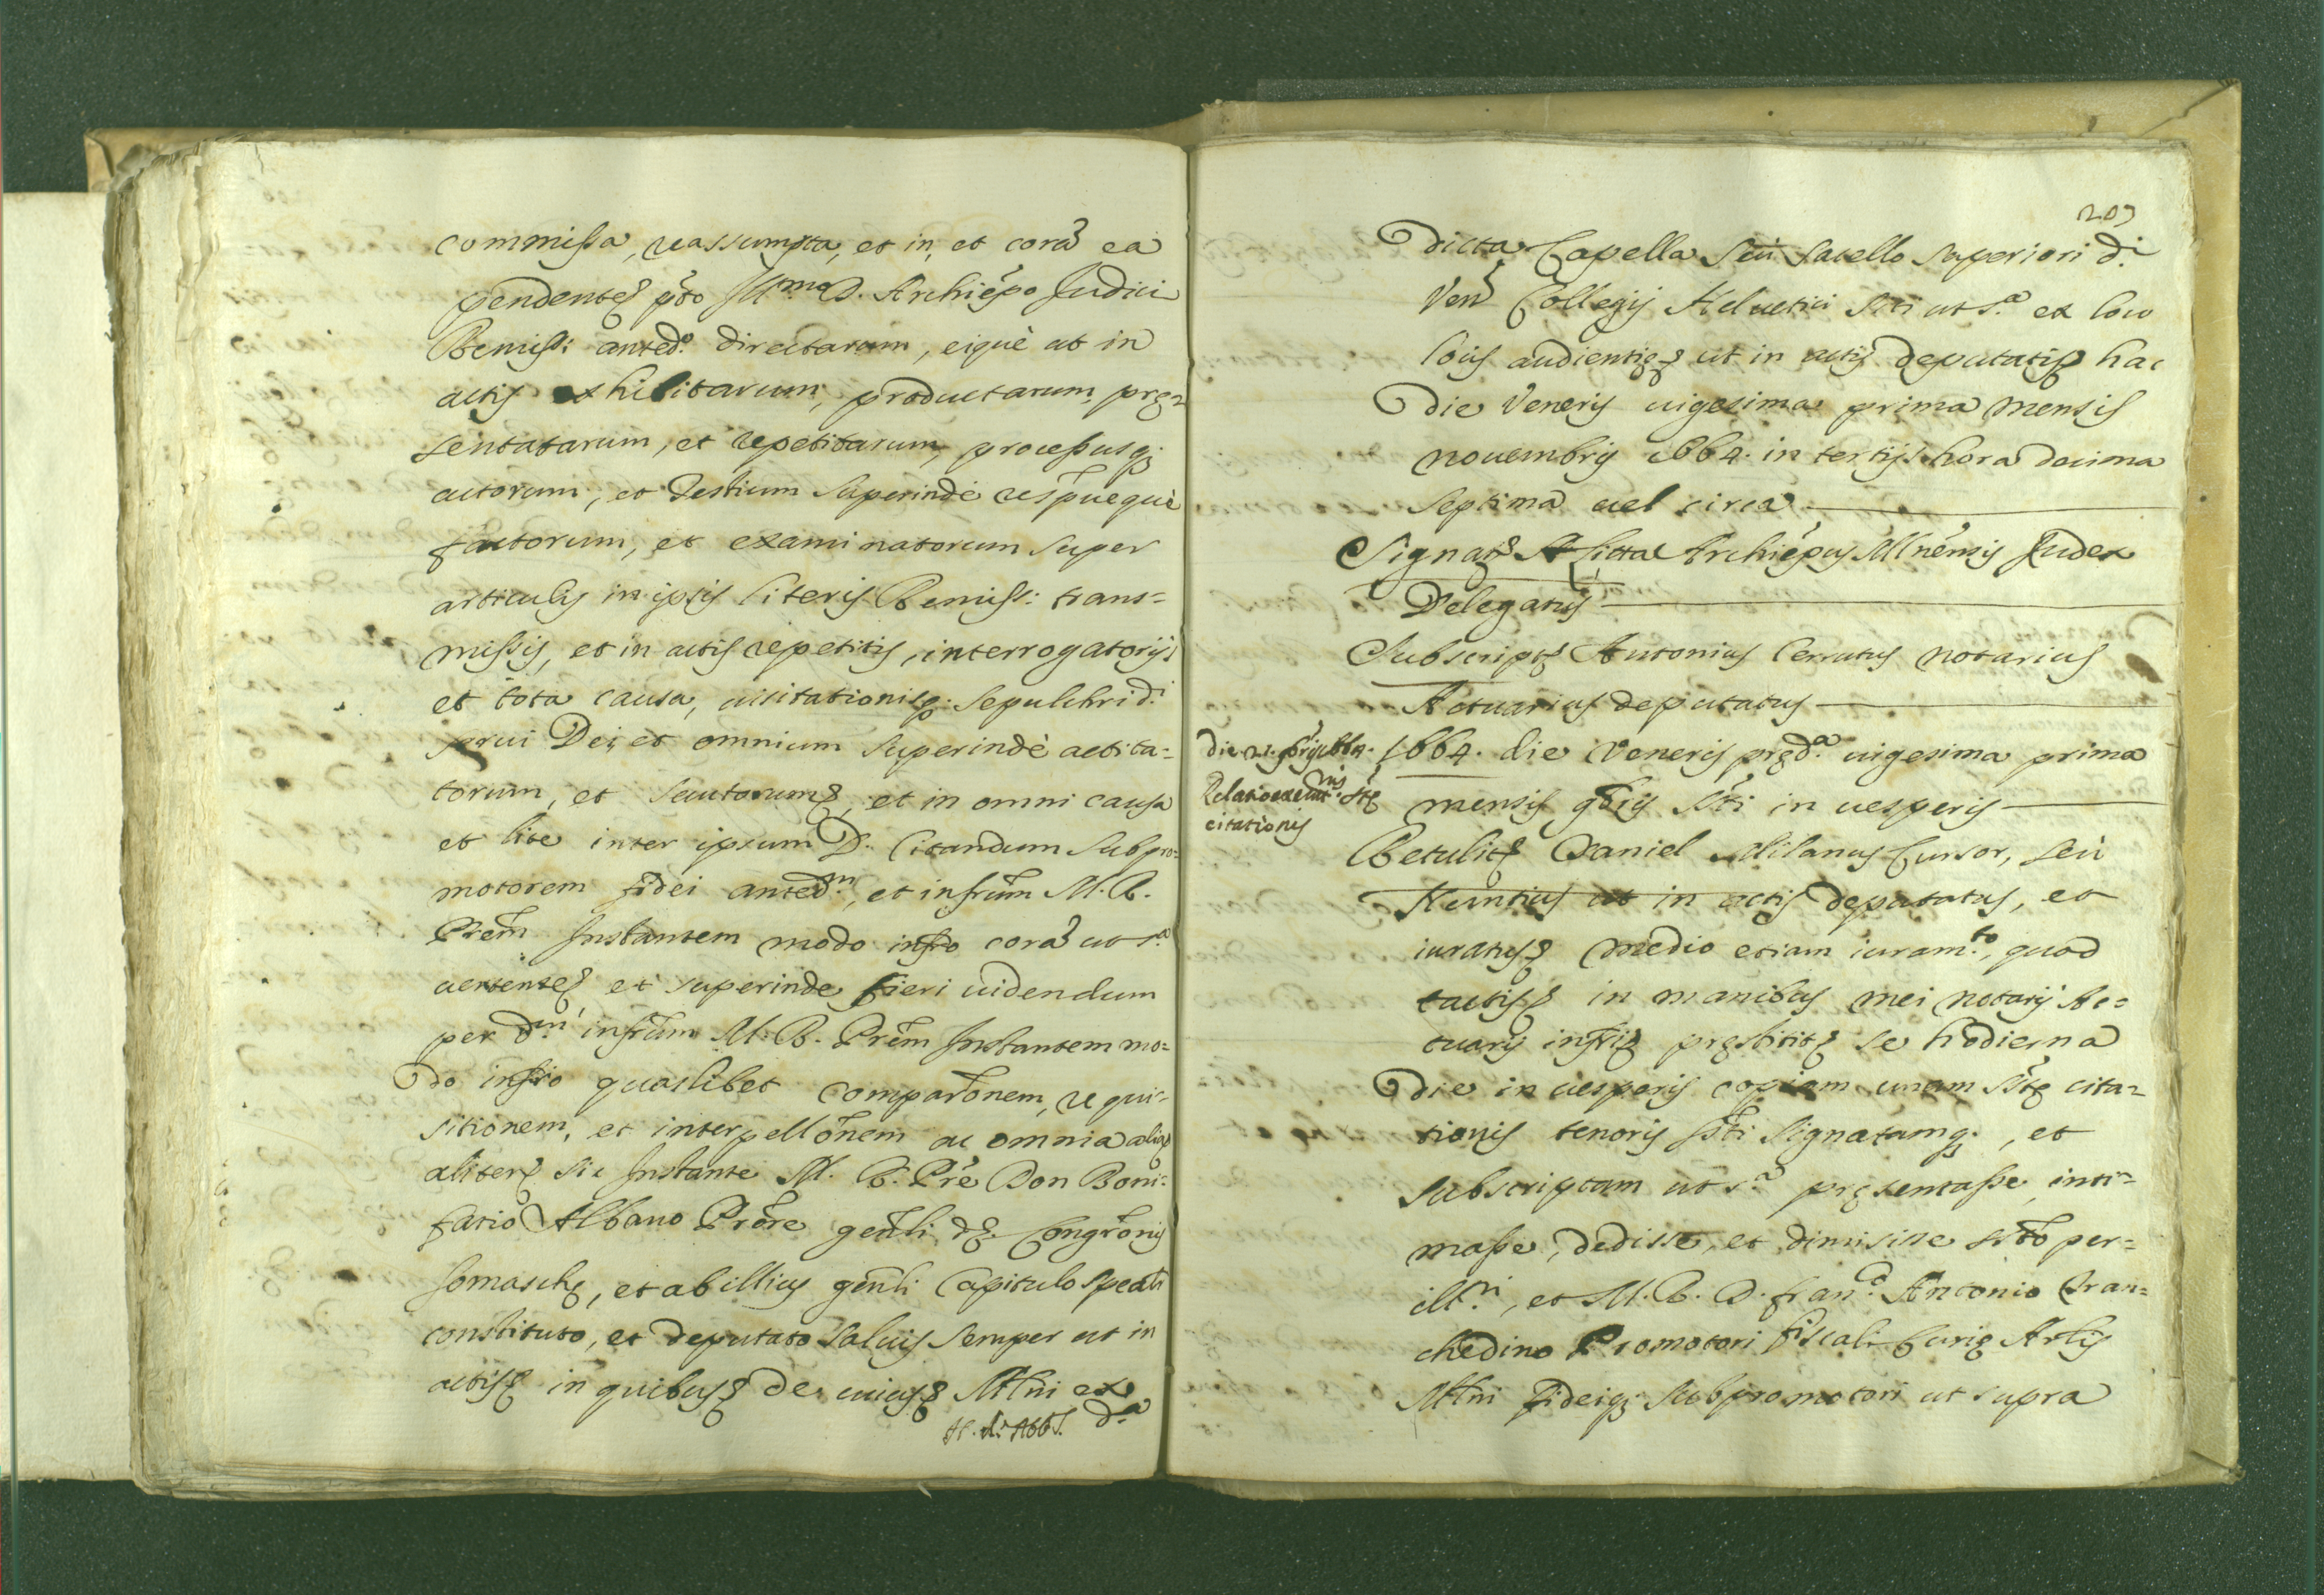 commissa, reassumpta, et in, et corã ea
pendenteq; pto Ill.mo D. Archiepo Judici
Remiss: anted.o directarum, eiquè ut in
actis exhibitarum, productarum, prę-
sentatarum, et repetitarum, processusq;
actorum, et Testium superindè respueque
factorum, et examinatorum super
articulis in ipsis literis Remiss: trans=
missis, et in actis repetitis, interrogatorijs
et tota causa, uisitationisq; sepulchri d.i
serui Dei, et omnium superindè actita=
torum, et secutorumq;, et in omni causa
et lite inter ipsum D. Citandum subpro=
motorem fidei anted.m, et infrum M. R.
Prem Instantem modo infro corã ut s.a
uertenteq; et superinde fieri uidendum
per d.m infrum M. R. Prem Instantem mo=
do infro quaslibet comparonem, requi=
sitionem, et interpellonem ac omnia aliaq;
aliterq; sic Instante M. R. Pre Don Boni=
fatio Albano Prore genli dę. Congronis
somaschę, et ab illius genli Capitulo speali
constituto, et deputato saluis semper ut in
actisq; in quibusq; de cuiusq; Mlni ex
d.a
203
Dicta Capella seu sacello superiori d.i
Ven Collegij Heluetici siti ut s.a ex loco
locis audientięq; ut in actis deputatisq; hac
Die Veneris uigesima prima mensis
nouembris 1664. in tertijs hora decima
septima uel circa
Signatq; A Litta Archiepus Mlnensis Judex
Delegatus
Subscriptq; Antonius Cerrutus notarius
Actuarius deputatus
die 21. 9bris 1664.
Relatio execut.nis stę
citationis
1664. die Veneris pręd.a uigesima prima
mensis 9bris sti in uesperis
Retulitq; Daniel Milanus Cursor, seù
Nuntius ut in actis deputatus, et
iuratusq; medio etiam iuram.to, quod
tactisq; in manibus mei notarij Ac=
tuarij infriq; pręstititq; se hodierna
Die in uesperis copiam unam stę cita=
tionis tenoris sti signatamq;, et
subscriptam ut s.a pręsentasse, inti=
masse, dedisse, et dimisisse sto per=
ill.ri, et M. R. D. Fran.co Antonio Tran=
chedino Promotori fiscali Curię Arlis
Mlni fideiq; Subpromotori ut supra